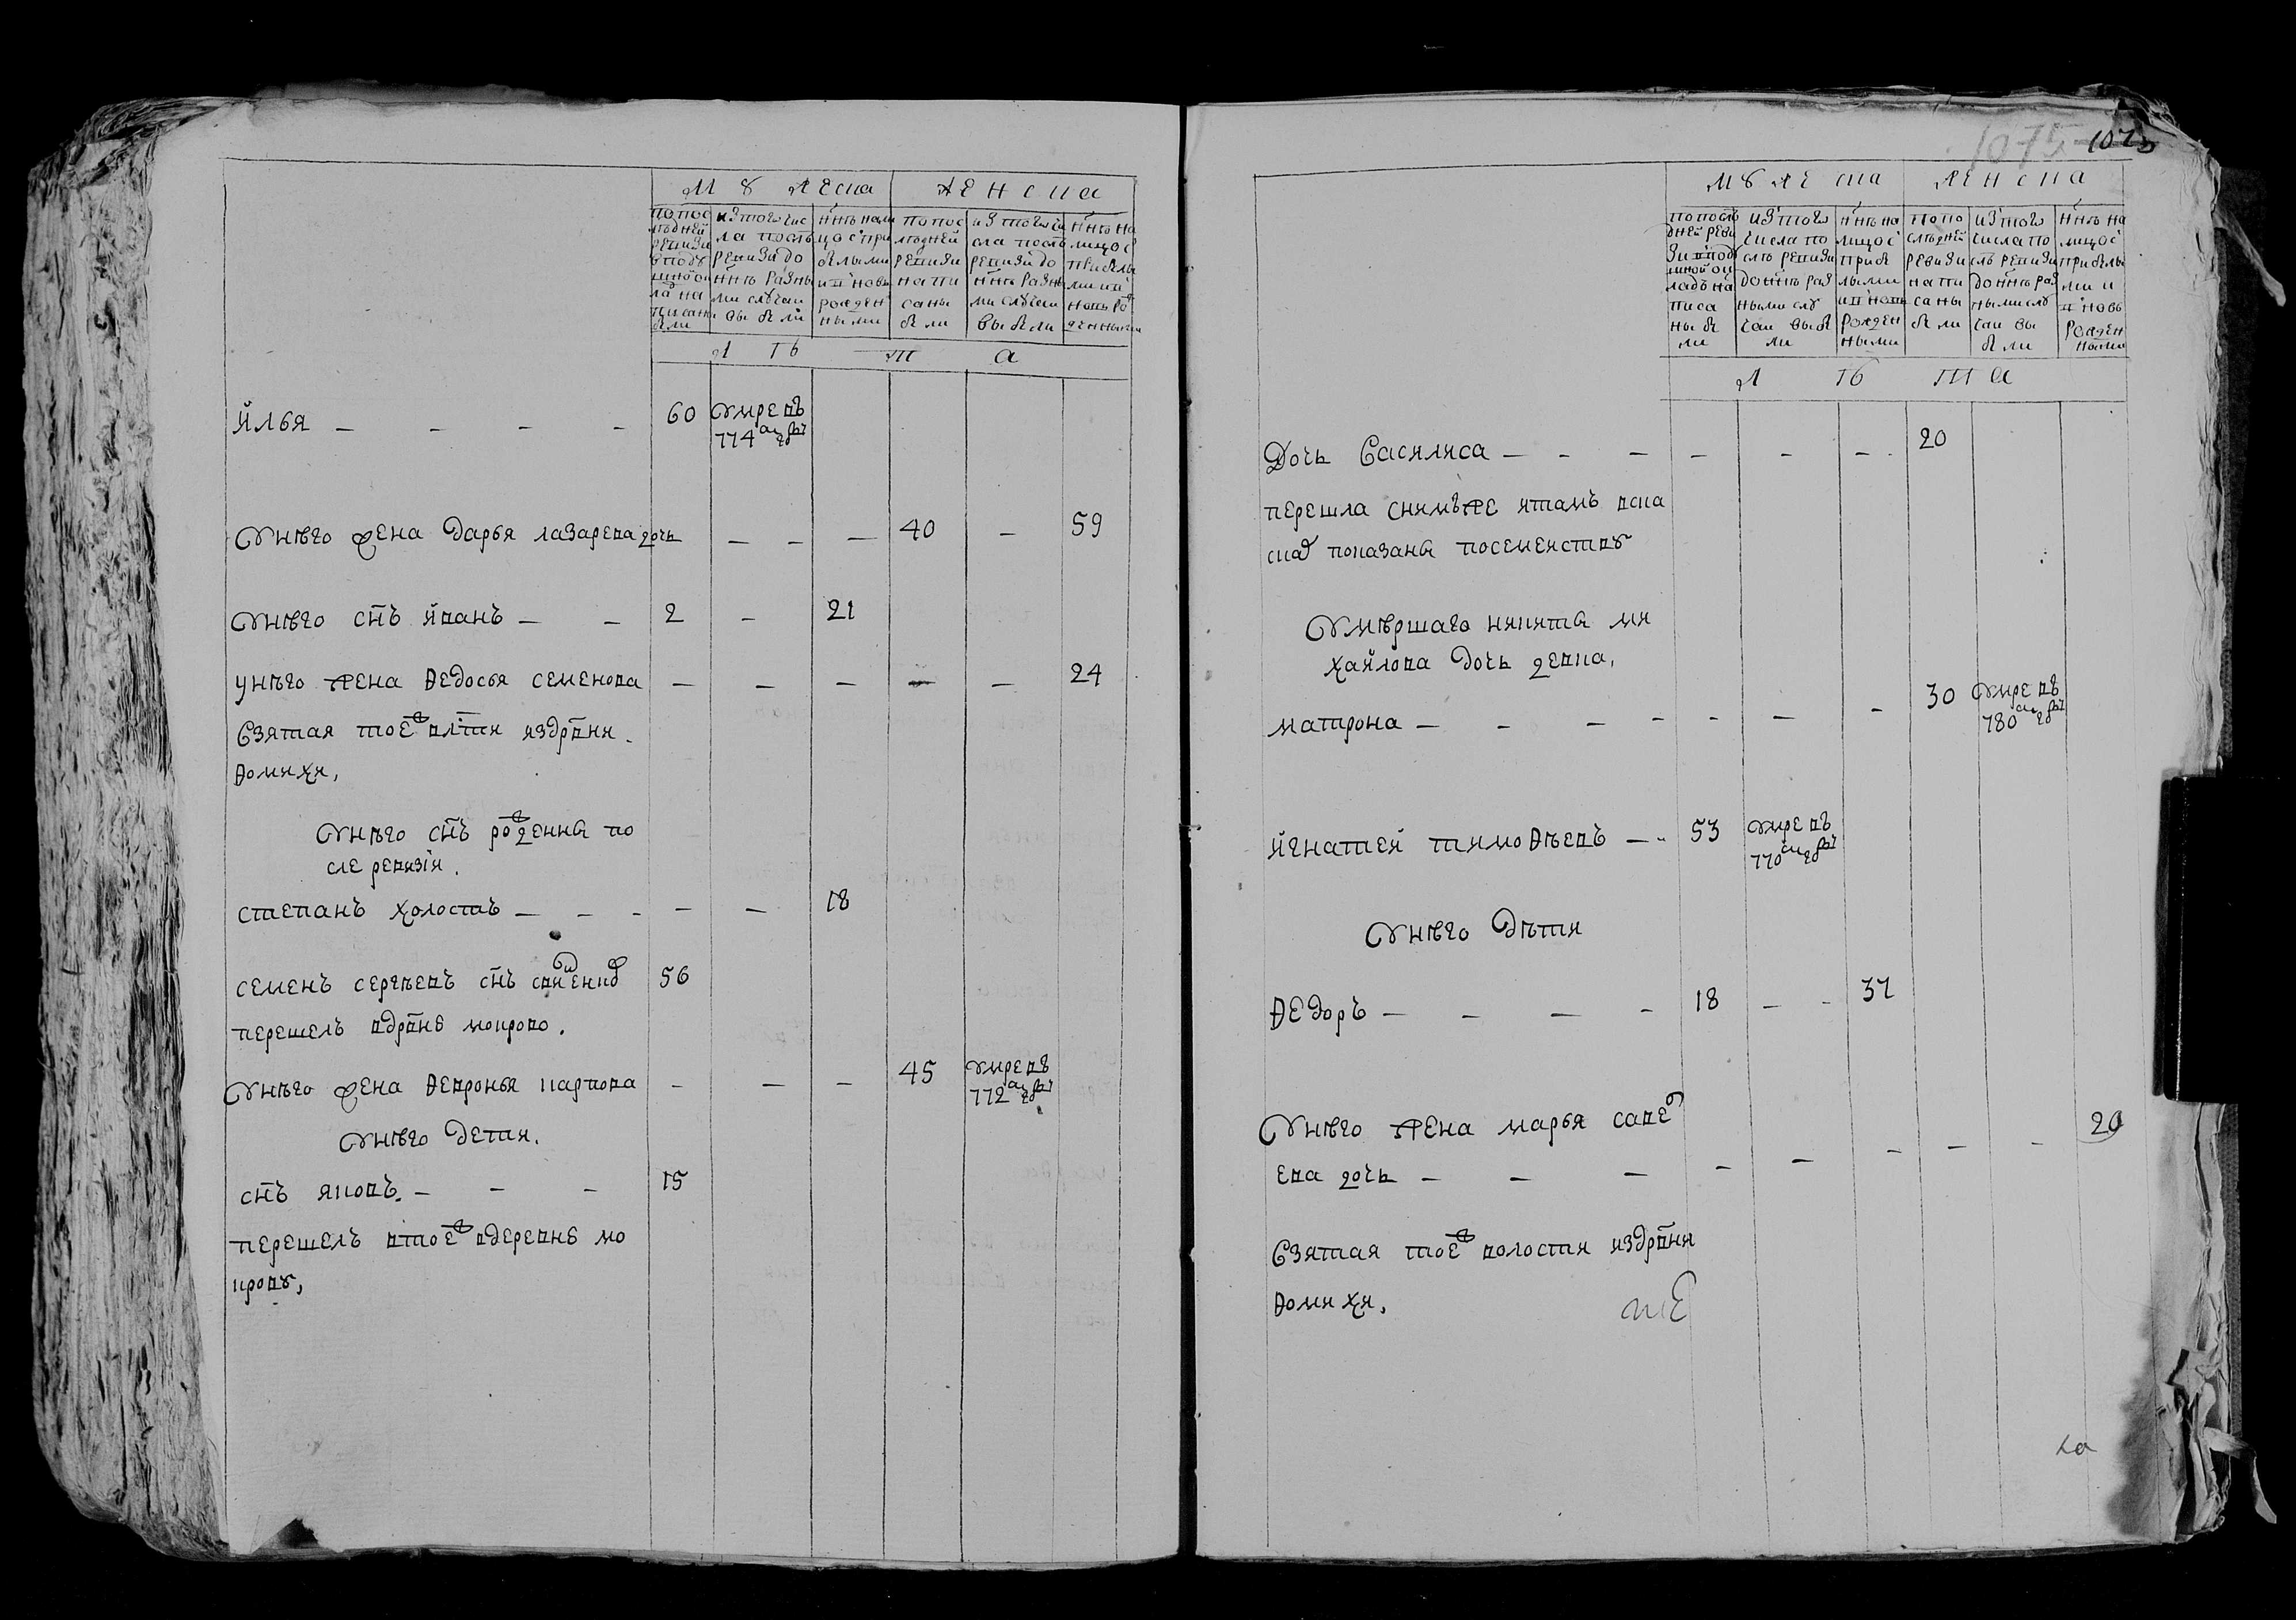 Мꙋжеска
Женска
по пос
лѣдней
ревизи
в подꙋ
шной ок
ладъ на
писаны
были
из того чис
ла послѣ
ревизи до
ннѣ разны
ми случаи
выбыли
ннѣ нали
цо с при
былыми
и в новь
рожден
ными
по пос
лѣдней
ревизи
напи
саны
были
из того чи
сла послѣ
ревизи до
ннѣ разны
ми случаи
выбыли
ннѣ на
лицо с
прибылы
ми и в
новь ро
жденными
лѣта
илья — — — — 60 ꙋмре въ
774 м годꙋ
ꙋнѣго жена дарья лазарева дочь — — — 40 — 59
ꙋнѣго снъ иванъ — — 2 — 21
унѣго жена ѳедосья семенова — — — — — 24
взятая тоеж влсти издрвни
ѳомихи,
ꙋнѣго снъ рожденны по
сле ревизiи.
степанъ холостъ — — — — — 18
семенъ сергѣевъ снъ 56
перешелъ вдрвню мокрово.
ꙋнѣго жена ѳевронья карпова — — — 45 ꙋмре въ
772 м годꙋ
ꙋнѣго дети.
снъ яковъ. — — — 15
перешелъ втоеж вдеревню мо
кровꙋ,
1075
1075
Мꙋжеска
Женска
по послѣ
дней реви
зи в под
ушной ок
ладъ на
писа
ны бы
ли
из того
числа по
слѣ ревизи
до ннѣ раз
ными слу
чаи выбы
ли
ннѣ на
лицо с
прибы
лыми
и в новь
рожден
ными
по по
слѣдней
ревизи
напи
саны
были
из того
числа по
слѣ ревизи
до ннѣ раз
ными слу
чаи вы
были
ннѣ на
лицо с
прибылы
ми и
в новь
рожден
ными
лѣта
дочь василиса — — — — — — 20
перешла снимъже итамъ
показаны посемеиствꙋ
ꙋмѣршаго никиты ми
хаилова дочь девка,
матрона — — — — — — — 30 ꙋмре въ
780 м годꙋ
игнатеи тимоѳѣевъ — — 53 ꙋмре въ
770 м годꙋ
ꙋнѣго дѣти
ѳедоръ — — — — 18 — — 37
ꙋнѣго жена марья савел
ева дочь — — — — — — — — 29
взятая тоеж волости издрвни
ѳомихи.